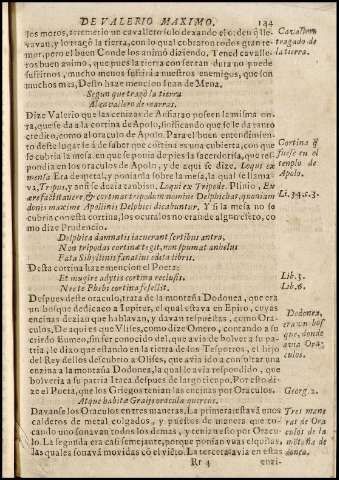 DE VALERIO MAXIMO. 144
los moros, arremetio un cavallero solo dexando el o: den q̃ lle-
vavan, y lo tragò la tierra, con lo qual cobraron todos gran te-
mor, pero el buen Conde los animó diziendo, Tened cavalle-
ros buen animo, que pues la tierra con ser tan dura no puede
sufrirnos, mucho menos sufrirà a nuestros enemigos, que son
muchos mas, Desto haze mencion Juan de Mena.
Segun que tragò la tierra
Al cavallero de marras.
Cavallero
tragado de
la tierra.
Dize Valerio que las cenizas de Anfiarao poseen la misma on-
rra, que se dà a la cortina de Apolo, significando que se le da tanto
credito, como al oraculo de Apolo. Para el buen entendimien-
to deste lugar se à de saber que cortina es una cubierta, con que
se cubria la mesa en que se ponia de pies la sacerdotisa, que res-
pondia en los oraculos de Apolo, y de aqui se dize. Loqui ex
mensa Era de metal, y ponianla sobre la mesa, la qual se llama-
va, Tripus, y ansi se dezia tambien, Loqui ex Tripode. Plinio, Ex
ære factitavere & cortinas tripodum nomine Delphicas, quoniam
donis maxime Apollinis Delphici dicabantur, Y si la mesa no se
cubria con esta cortina, los oraculos no eran de algun efeto, co-
mo dize Prudencio.
Cortina q̃
fuesse en el
templo de
Apolo.
Li. 34. c. 3.
Delphica damnatis tacuerunt sortibus antra,
Non tripodas cortina tegit, non spumat anhelus
Fata Sibyllinis fanaticus edita libris.
Desta cortina haze mencion el Poeta:
Et mugire adytis cortina reclusis.
Nec te Phœbi cortina fefellit.
Lib. 3.
Lib. 6.
Despues deste oraculo, trata de la montaña Dodonea, que era
un bosque dedicado a Iupiter, el qual estava en Epiro, cuyas
enzinas dezian que hablavan, y davan respuestas, como Ora-
culos. De aqui es que Ulises, como dize Omero, contando a su
criado Eumeo, sin ser conocido del, que avia de bolver a su pa-
tria, le dixo que estando en la tierra de los Tesprotos, el hijo
del Rey dellos descubrio a Olises, que avia ido a consultar una
enzina a la montaña Dodonea, la qual le avia respondido, que
bolveria a su patria Itaca despues de largo tiempo, Por esto di-
ze el Poeta, que los Griegos tenian las enzinas por Oraculos.
Atque habitæ Graijs oracula quercus.
Dodonea,
era un bos
que, donde
avia Ora-
culos.
Georg. 2.
Davanse los Oraculos entres maneras, La primera estavã unos
calderos de metal colgados, y puestos de manera que to-
cando uno sonavan todos los demas, y ceniavasse por Oracu-
lo, La segunda era casi semejante, porque ponian vnas esquilas,
las quales sonavã movidas cõ el viẽto. La tercera avia en estas
Tres mane
rat de Ora
culos de la
mõtaña de
donea.
Rr 4 enzi-